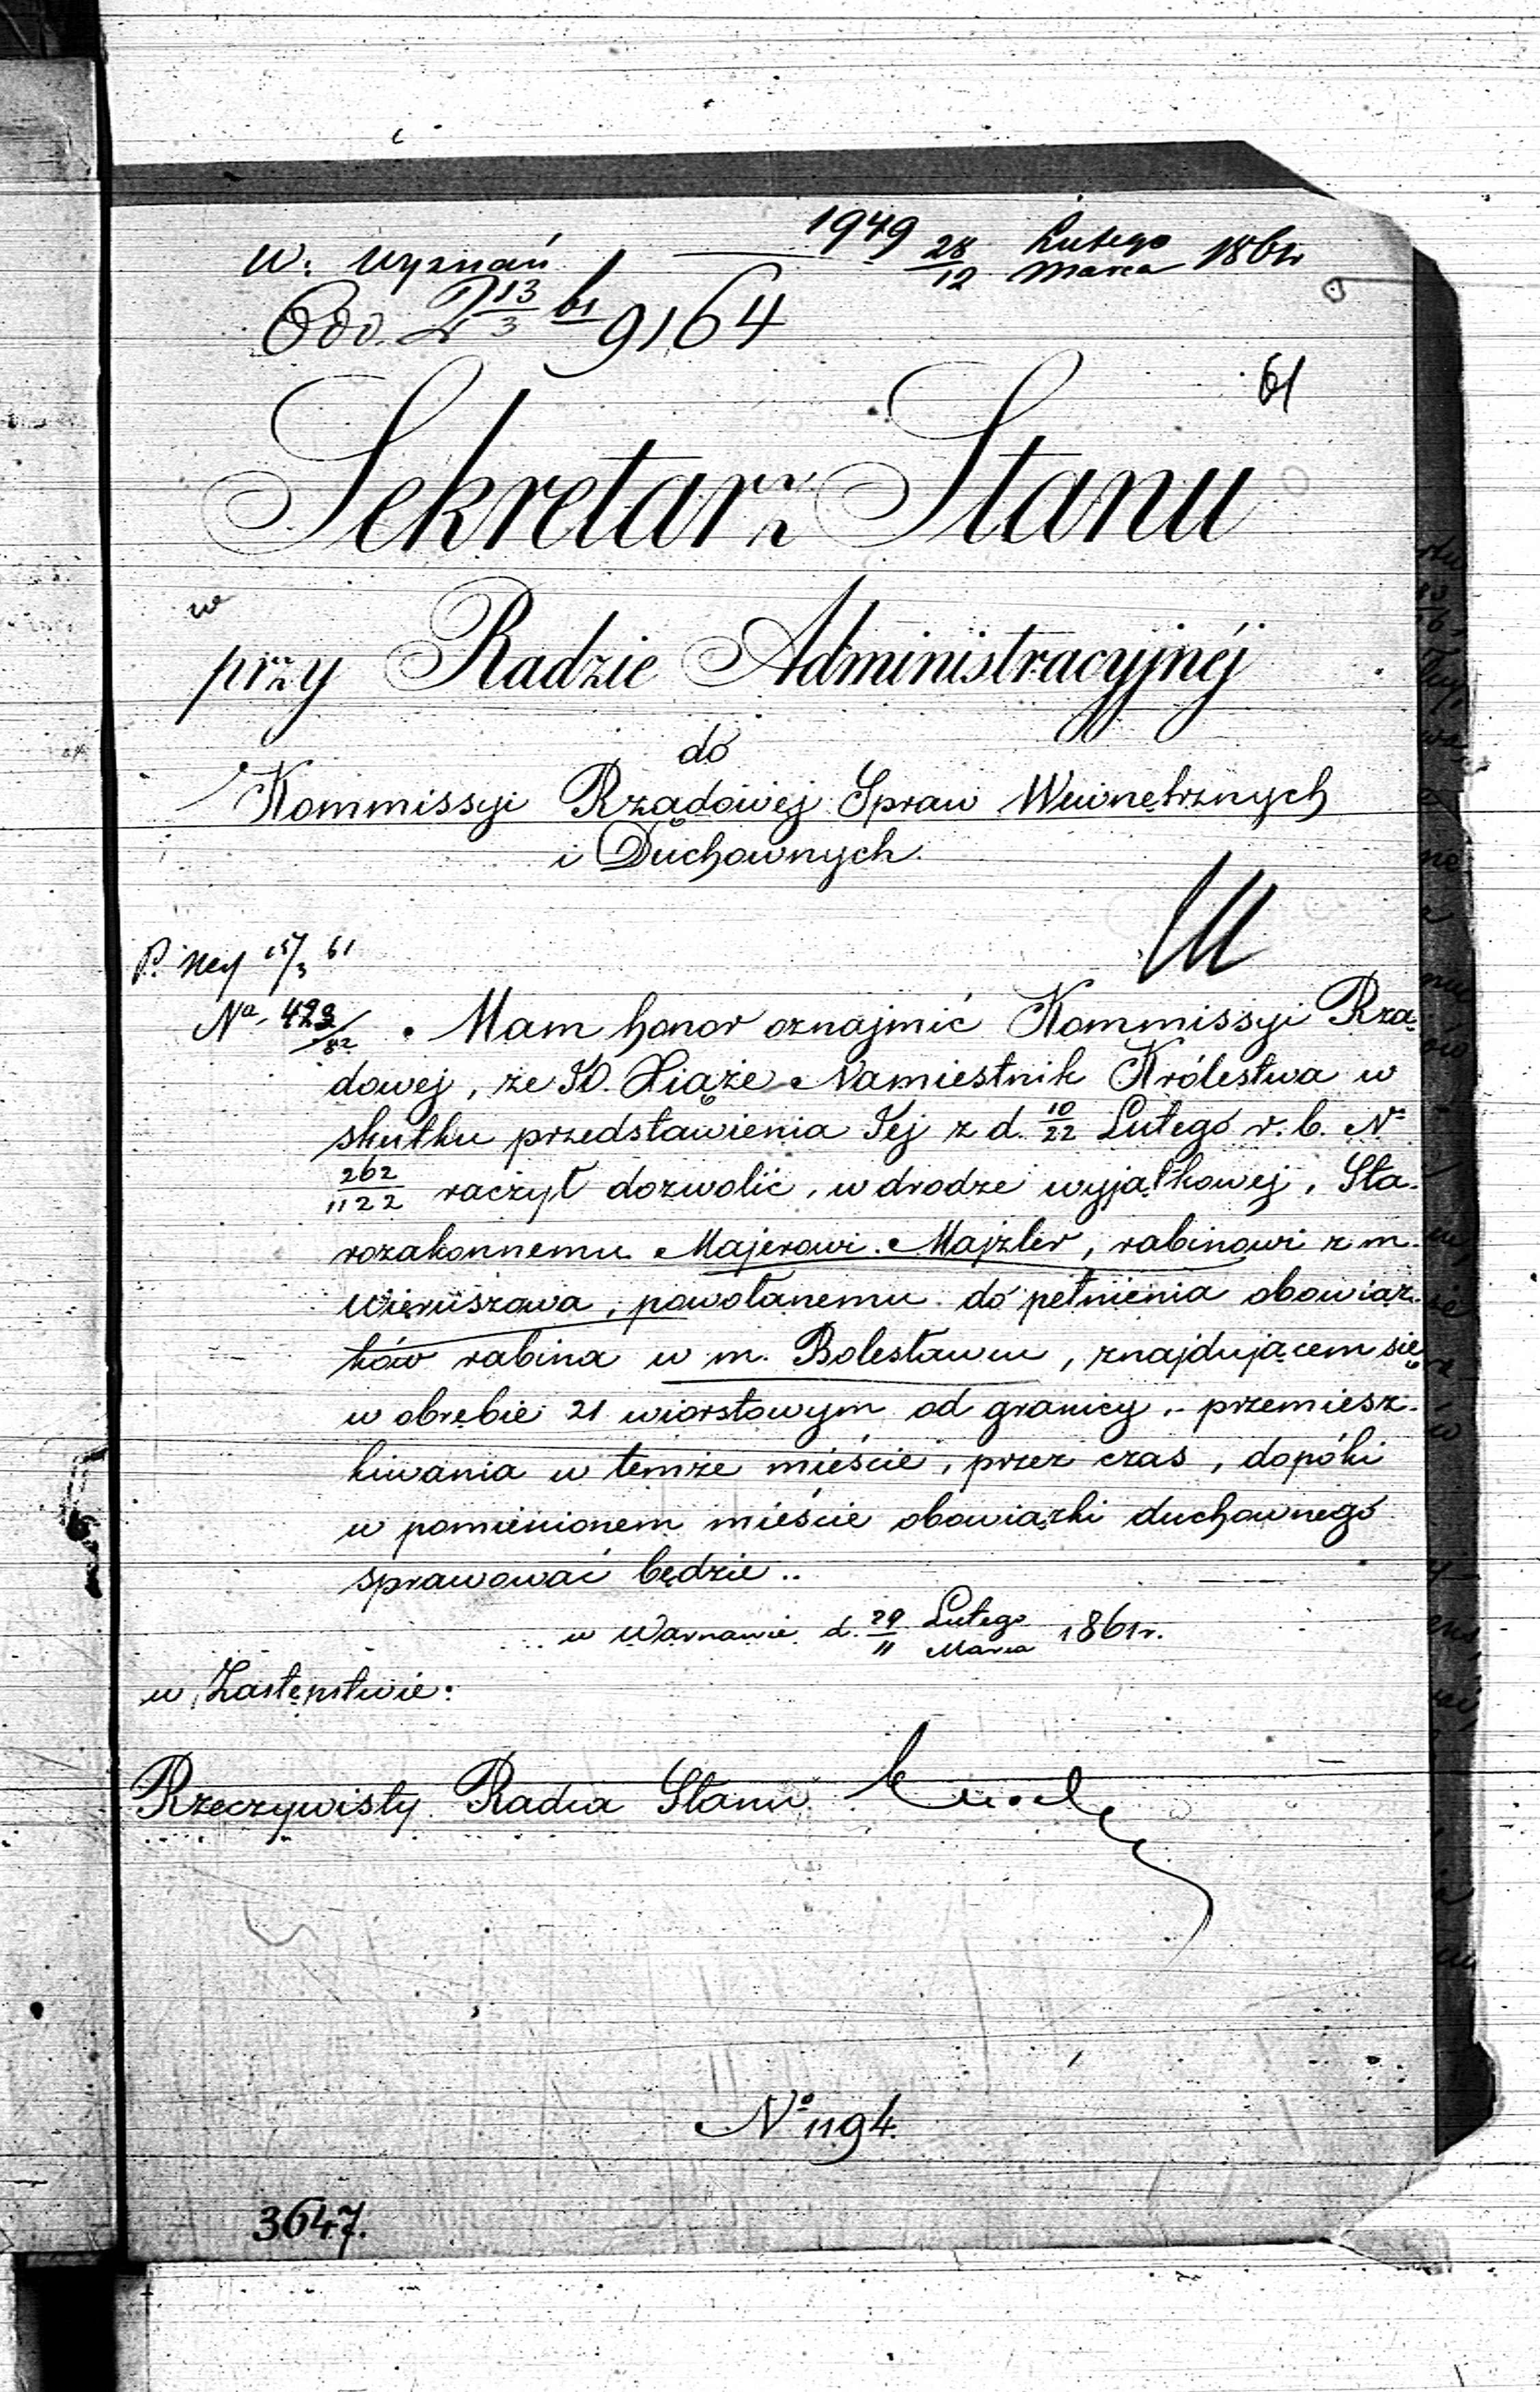 W. Wyznań 1949 28/12 Lutego/Marca 1861r
Odd. 13/3 61 9164
61
Sekretarz Stanu
przy Radzie Administracyjnéj
do
Kommissyi Rządowéj Spraw Wewnętrznych
i Duchownych.
P. Hey 15/3 61
No. 423/82 Mam honor oznajmić Kommissyi Rzą-
dowej, że JO. Xiąże Namiestnik Królestwa w
skutku przedstawienia Jej z d. 10/22 Lutego r. b. No
262/1122 raczył dozwolić, w drodze wyjątkowej, Sta-
rozakonnemu Majerowi Majzler, rabinowi z m.
Wieruszowa, powołanemu do pełnienia obowiąz-
ków rabina w m. Bolesławiu, znajdującem się
w obrębie 21 wiorstowym od granicy, przemiesz-
kiwania w temże mieście, przez czas, dopóki
w pomienionem mieście obowiązki duchownego
sprawować będzie..
w Warszawie d. 29/11 Lutego/Marca 1861r.
w Zastępstwie:
Rzeczywisty Radca Stanu
No 1194.
3647.